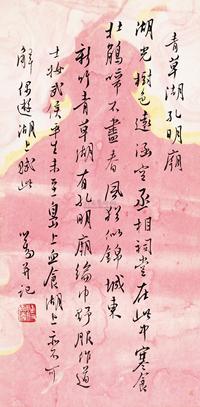 青草湖孔明廟
湖光樹色遠涵空丞相祠堂在此中寒食
杜鵑啼不盡春風猶似錦城東
新竹青草湖有孔明廟綸巾野服作道
士妝武侯平生未至島上血食湖上亦不可
解偶遊湖上賦此
溥并記